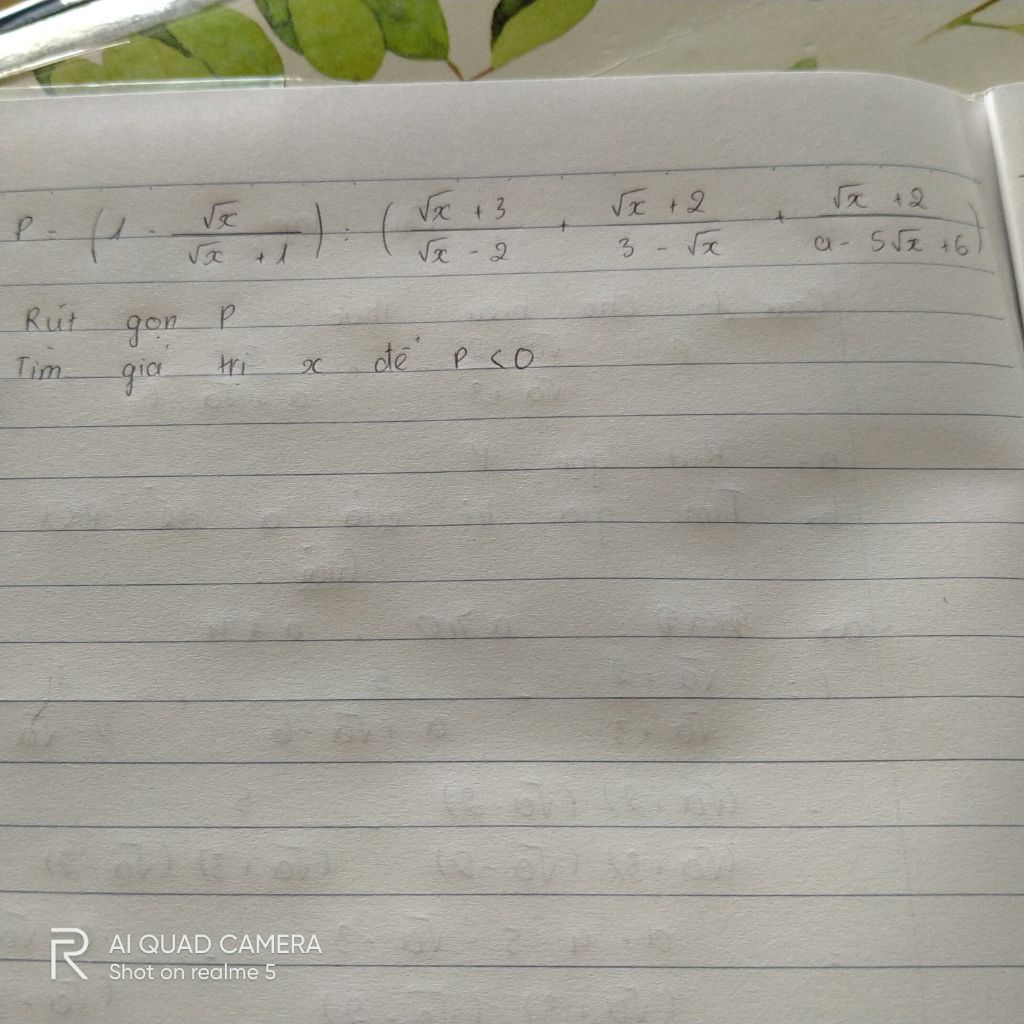 P = (1 - √x / (√x + 1)) : ((√x + 3) / (√x - 2) + (√x + 2) / (3 - √x) + (√x + 2) / (a - 5√x + 6))
Rút gọn P
Tìm giá trị x để P < 0
AI QUAD CAMERA
Shot on realme 5